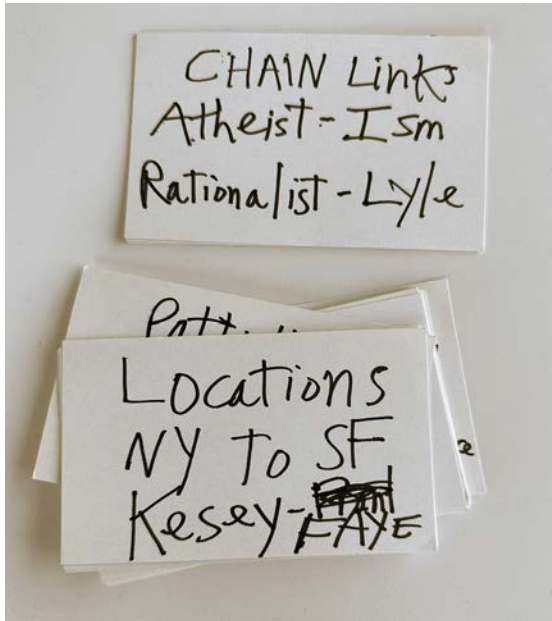 CHAIN Links
Atheist - Ism
Rationalist - Lyle
Locations
NY To SF
Kesey - FAYE